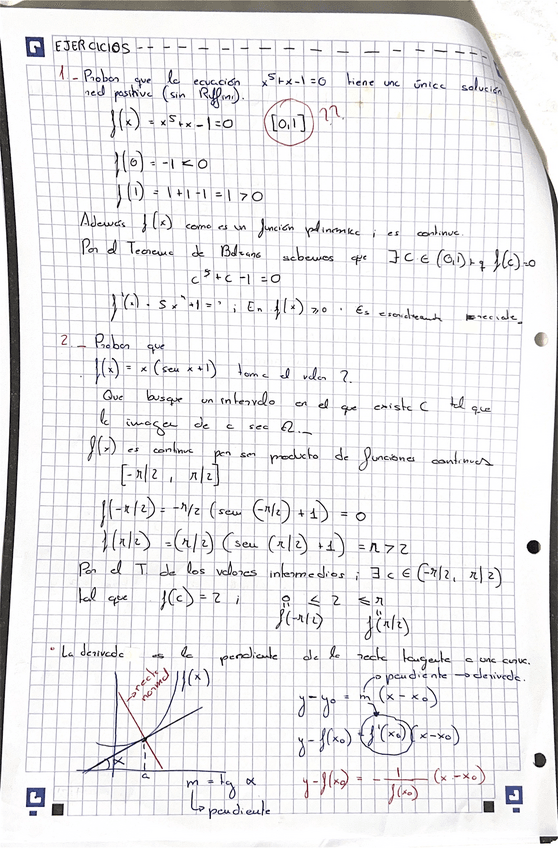 EJERCICIOS
1.- Probar que la ecuación x⁵+x-1=0 tiene una única solución
real positiva (sin Ruffini).
f(x) = x⁵+x-1=0 [0,1] ??
f(0) = -1 < 0
f(1) = 1+1-1 = 1 > 0
Además f(x) como es un función polinómica ; es continua.
Por el Teorema de Bolzano sabemos que ∃ C ∈ (0,1) t.q f(c)=0
c⁵+c-1=0
2.- Probar que
f(x) = x (sen x+1) toma el valor 2.
Que busque un intervalo en el que existe C tal que
la imagen de c sea
f(x) es continua por ser producto de funciones continuas
[-π/2, π/2]
f(-π/2) = -π/2 (sen (-π/2) + 1) = 0
f(π/2) = (π/2) (sen (π/2) + 1) = π > 2
Por el T de los valores intermedios ; ∃ c ∈ (-π/2, π/2)
tal que f(c) = 2 ; 0 ≤ 2 ≤ π
f(-π/2) f(π/2)
· La derivada es la pendiente de la recta tangente a una curva.
pendiente → derivada.
recta normal
f(x)
y-y₀ = m (x-x₀)
y-f(x₀) = f'(x₀) (x-x₀)
α
a
m = tg α
pendiente
y-f(x₀) = - 1/f(x₀) (x-x₀)